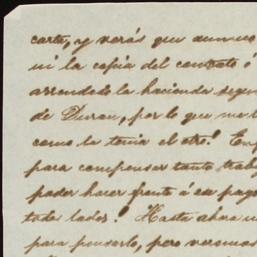 carta, y verás que aun no
ni la copia del contrato é
arrendado la hacienda segun
de Duran, por lo que me h
como la tenia el otro!
para compensar tanto trab
poder hacer frente á su pago
todos lados! Hasta ahora n
para pensarlo, pero veremos